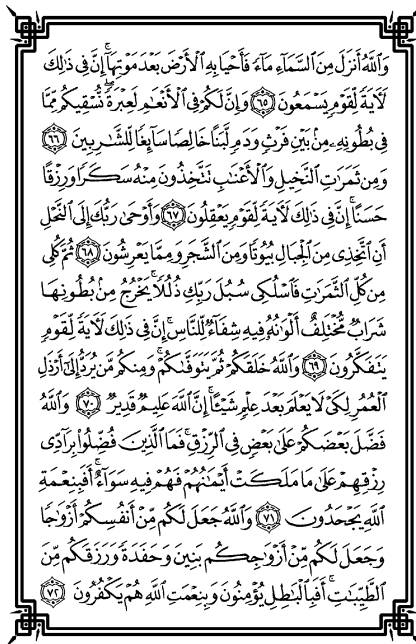 وَٱللَّهُ أَنزَلَ مِنَ ٱلسَّمَآءِ مَآءً فَأَحْيَا بِهِ ٱلْأَرْضَ بَعْدَ مَوْتِهَآ ۚ إِنَّ فِى ذَٰلِكَ
لَءَايَةً لِّقَوْمٍ يَسْمَعُونَ ٦٥ وَإِنَّ لَكُمْ فِى ٱلْأَنْعَٰمِ لَعِبْرَةً ۖ نُّسْقِيكُم مِّمَّا
فِى بُطُونِهِۦ مِنۢ بَيْنِ فَرْثٍ وَدَمٍ لَّبَنًا خَالِصًا سَآئِغًا لِّلشَّٰرِبِينَ ٦٦
وَمِن ثَمَرَٰتِ ٱلنَّخِيلِ وَٱلْأَعْنَٰبِ تَتَّخِذُونَ مِنْهُ سَكَرًا وَرِزْقًا
حَسَنًا ۗ إِنَّ فِى ذَٰلِكَ لَءَايَةً لِّقَوْمٍ يَعْقِلُونَ ٦٧ وَأَوْحَىٰ رَبُّكَ إِلَى ٱلنَّحْلِ
أَنِ ٱتَّخِذِى مِنَ ٱلْجِبَالِ بُيُوتًا وَمِنَ ٱلشَّجَرِ وَمِمَّا يَعْرِشُونَ ٦٨ ثُمَّ كُلِى
مِن كُلِّ ٱلثَّمَرَٰتِ فَٱسْلُكِى سُبُلَ رَبِّكِ ذُلُلًا ۚ يَخْرُجُ مِنۢ بُطُونِهَا
شَرَابٌ مُّخْتَلِفٌ أَلْوَٰنُهُۥ فِيهِ شِفَآءٌ لِّلنَّاسِ ۗ إِنَّ فِى ذَٰلِكَ لَءَايَةً لِّقَوْمٍ
يَتَفَكَّرُونَ ٦٩ وَٱللَّهُ خَلَقَكُمْ ثُمَّ يَتَوَفَّىٰكُمْ ۚ وَمِنكُم مَّن يُرَدُّ إِلَىٰٓ أَرْذَلِ
ٱلْعُمُرِ لِكَىْ لَا يَعْلَمَ بَعْدَ عِلْمٍ شَيْـًٔا ۚ إِنَّ ٱللَّهَ عَلِيمٌ قَدِيرٌ ٧٠ وَٱللَّهُ
فَضَّلَ بَعْضَكُمْ عَلَىٰ بَعْضٍ فِى ٱلرِّزْقِ ۚ فَمَا ٱلَّذِينَ فُضِّلُوا۟ بِرَآدِّى
رِزْقِهِمْ عَلَىٰ مَا مَلَكَتْ أَيْمَٰنُهُمْ فَهُمْ فِيهِ سَوَآءٌ ۚ أَفَبِنِعْمَةِ
ٱللَّهِ يَجْحَدُونَ ٧١ وَٱللَّهُ جَعَلَ لَكُم مِّنْ أَنفُسِكُمْ أَزْوَٰجًا
وَجَعَلَ لَكُم مِّنْ أَزْوَٰجِكُم بَنِينَ وَحَفَدَةً وَرَزَقَكُم مِّنَ
ٱلطَّيِّبَٰتِ ۚ أَفَبِٱلْبَٰطِلِ يُؤْمِنُونَ وَبِنِعْمَتِ ٱللَّهِ هُمْ يَكْفُرُونَ ٧٢